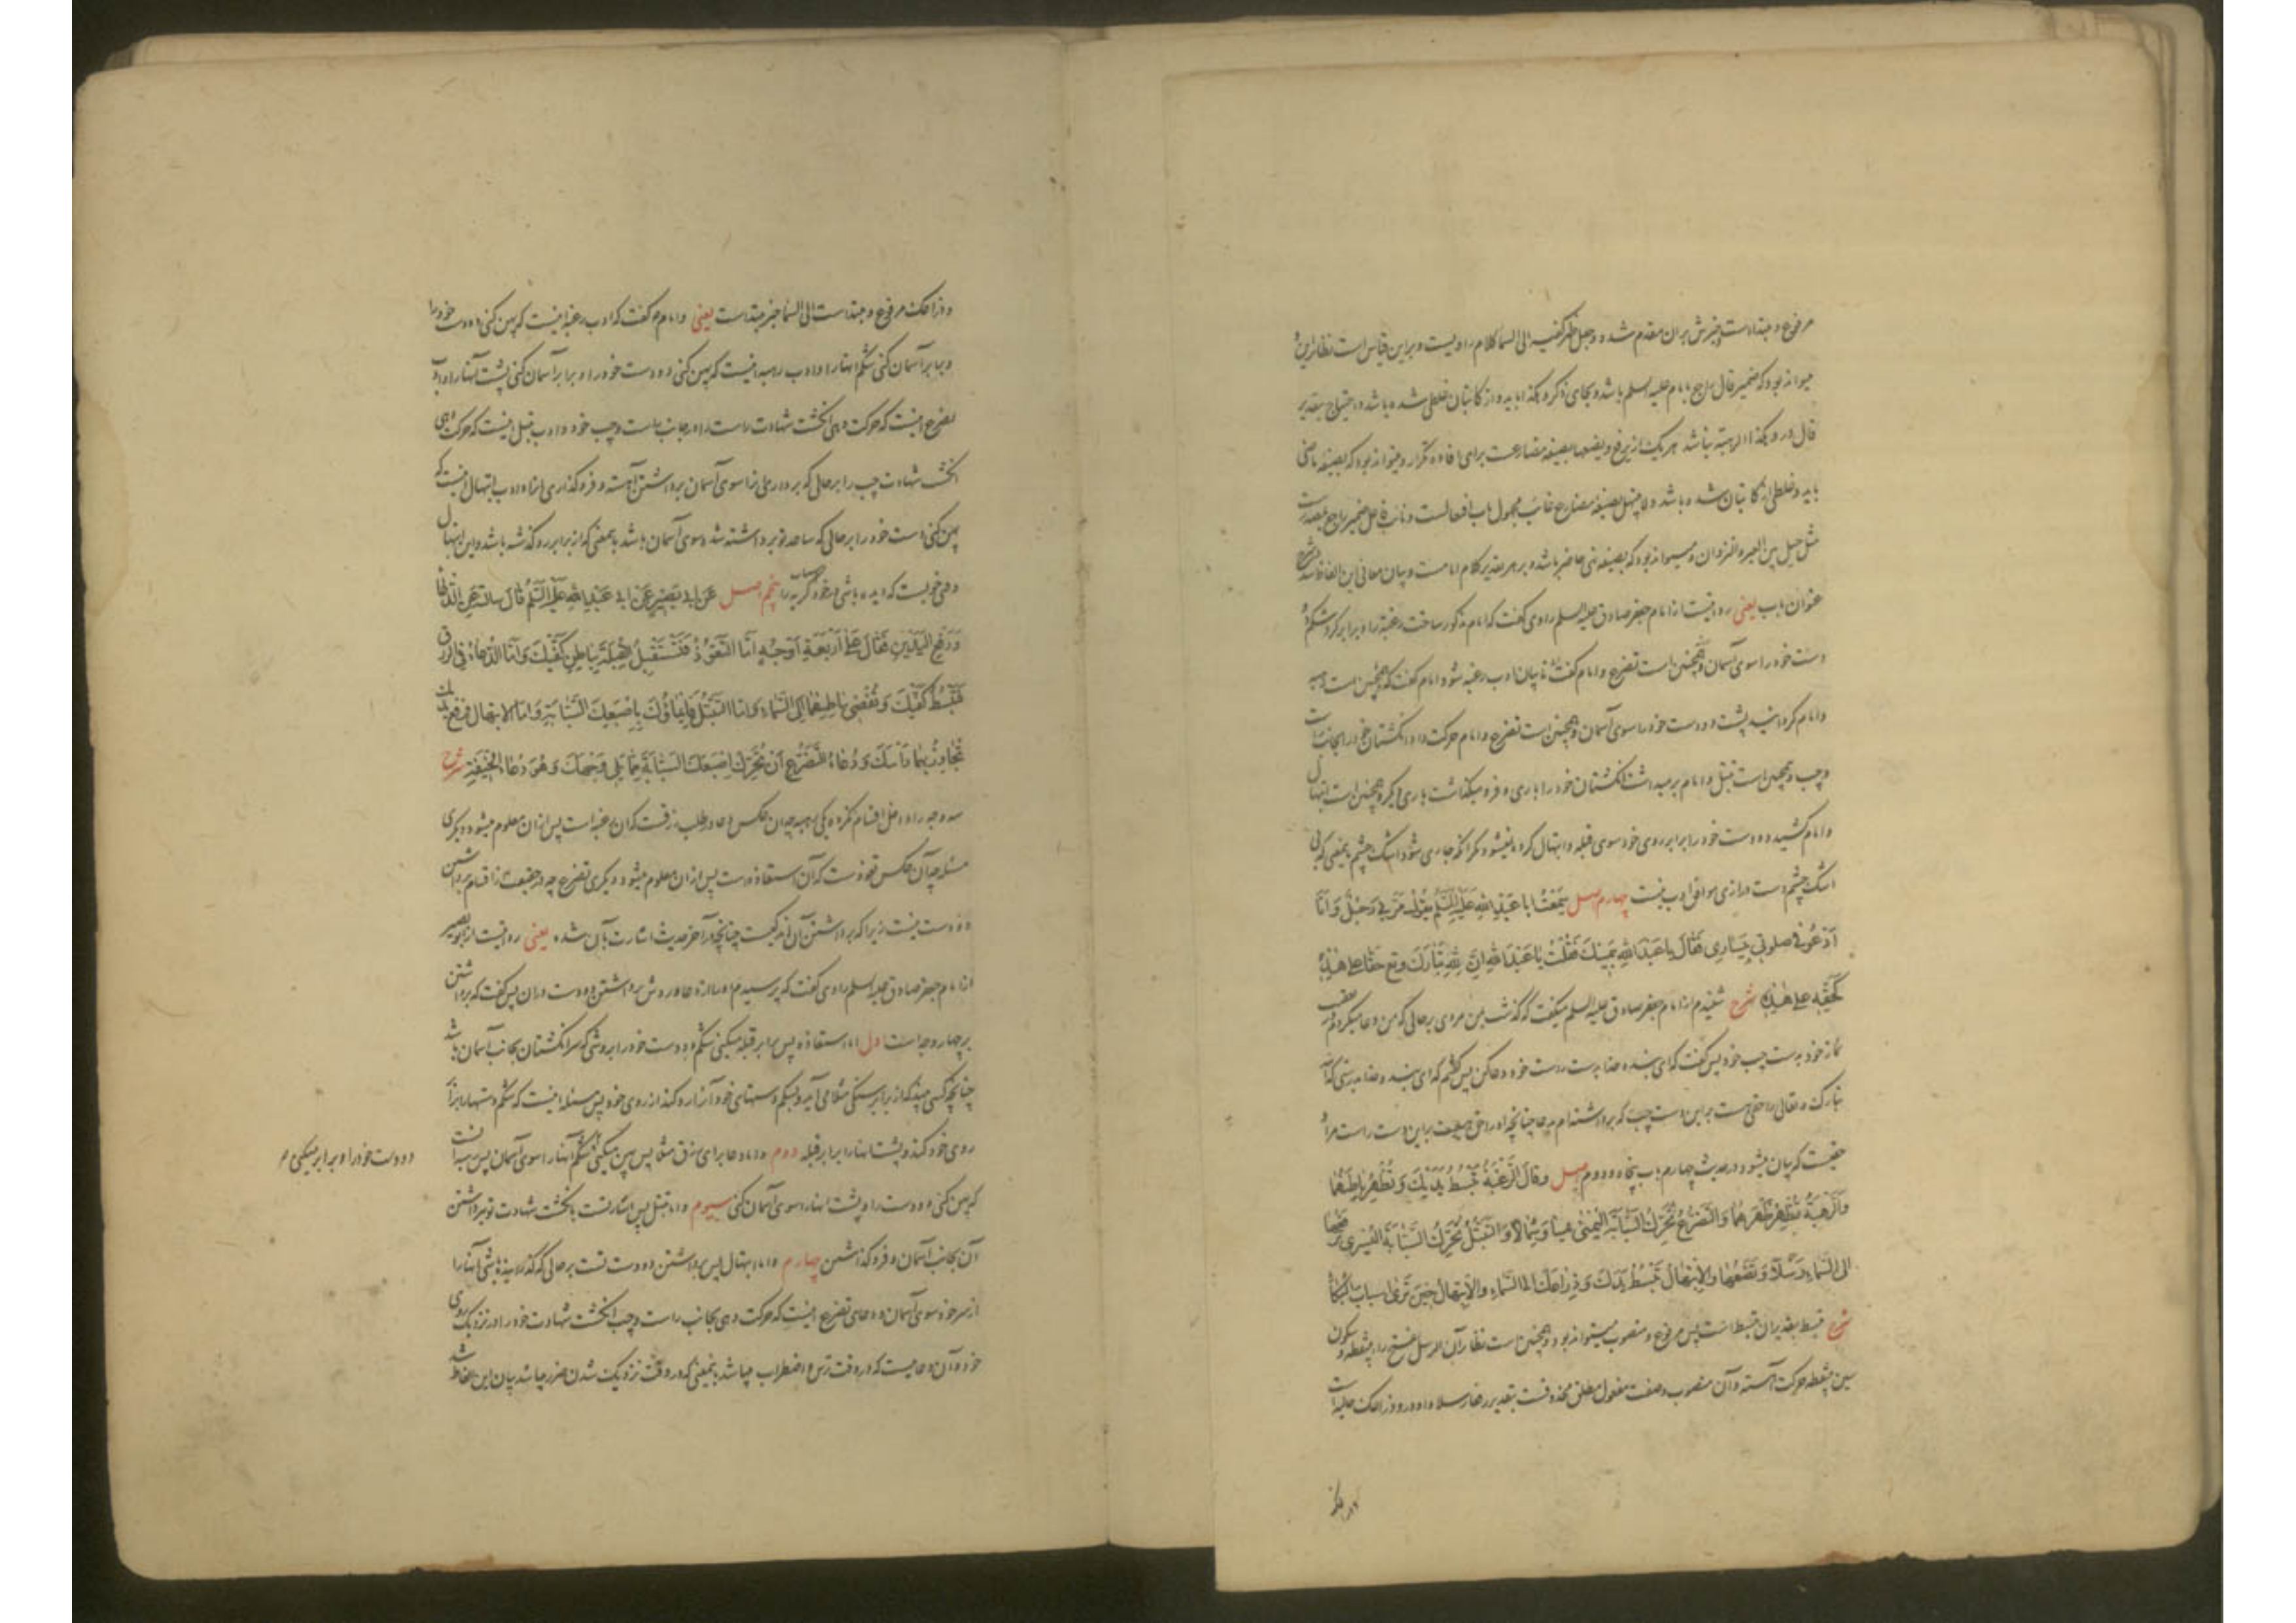 مرفوع و مبتداست و خبرش بر آن مقدم شده و جعل ظهر کفیه الی السما کلام راویست و براین قیاس است نظایر این و
میتواند بود که ضمیر قال راجع بامام علیه السلم باشد و بجای ذکر و هکذا باید و از کاتبان غلطی شده باشد و احتیاج بتقدیر
قال در و هکذا الرهبة نباشد هر یک از یرفع و یضعها بصیغه مضارعت برای افاده تکرار و میتواند بود که بصیغه ماضی
باید و غلطی از کاتبان شده باشد و لا یبتهل بصیغه مضارع غائب مجهول باب افعالست و نائب فاعل ضمیر راجع بمصدرست
مثل حیل بین العیر و النزوان و میتواند بود که بصیغه نهی حاضر باشد و بر هر تقدیر کلام امامت و بیان معانی این الفاظ شد در شرح
عنوان باب یعنی روایتست از امام جعفر صادق علیه السلم راوی گفت که امام مذکور ساخت رغبة را و برابر کرد شکم دو
دست خود را سوی آسمان و همچنین است تضرع و امام گفت تا بیان ادب رغبه شود امام گفت که و همچنین است رهبه
و امام گردانید پشت دو دست خود را سوی آسمان و همچنین است تضرع و امام حرکت داد انگشتان خود را بجانب راست
و چپ و همچنین است تبتل و امام برمیداشت انگشتان خود را باری و فرو میگذاشت باری دیگر و همچنین است ابتهال
و امام کشید دو دست خود را برابر روی خود سوی قبله و ابتهال کرده نمیشود مگر آنکه جاری شود اشک چشم بمعنی که بی
اشک چشم دست درازی موافق ادب نیست چهارم اصل سَمِعْتُ اَبا عَبْدِ اللهِ عَلَیْهِ السَّلَمُ یَقُولُ مَرَّ بی رَجُلٌ وَ اَنَا
اَدْعُو فی صلوتی بِیَسَاری فَقَالَ یا عَبْدَ اللهِ بِیَمِینِکَ فَقُلْتُ یا عَبْدَ اللهِ اِنَّ لِلّٰهِ تَبَارَکَ و تع حَقًّا عَلی هٰذِهِ
کَحَقِّهِ عَلی هٰذِهِ شرح شنیدم از امام جعفر صادق علیه السلم میگفت که گذشت بمن مردی بر حالی که من دعا میکردم در تعقیب
نماز خود بدست چپ خود پس گفت که ای بنده خدا بدست راست خود دعا کن پس گفتم که ای بنده خدا بدرستی که الله
تبارک و تعالی را حقی هست بر این دست چپ که برداشته‌ام بدعا چنانچه او را حقی هست بر این دست راست مراد
حقیست که بیان میشود در حدیث چهارم باب پنجاه و دوم اصل وَ قالَ الرَّغْبَةُ تَبْسُطُ یَدَیْکَ وَ تُظْهِرُ بَاطِنَهُمَا
وَ الرَّهْبَةُ تُظْهِرُ ظَهْرَهُمَا وَ التَّضَرُّعُ تُحَرِّکُ السَّبَّابَةَ الیُمْنٰی یَمِیناً وَ شِمَالاً وَ التَّبَتُّلُ تُحَرِّکُ السَّبَّابَةَ الیُسْری تَرْفَعُهَا
اِلی السَّمَاءِ رَسْلاً وَ تَضَعُهَا وَ الاِبْتِهَالُ تَبْسُطُ یَدَکَ وَ ذِرَاعَکَ اِلَی السَّمَاءِ وَ الاِبْتِهَالُ حِینَ تَرٰی اَسْبَابَ البُکَاءِ
شرح تبسط بتقدیر ان تبسط است پس مرفوع و منصوب میتواند بود و همچنین است نظایر آن الرسل بفتح راء بینقطه و سکون
سین بینقطه حرکت آهسته و آن منصوب و صفت مفعول مطلق محذوفست بتقدیر رفعا رسلا و او در و ذراعک حالیه است
و ذراعک مرفوع و مبتداست الی السما خبر مبتداست یعنی و امام گفت که ادب رغبه اینست که پهن کنی دو دست خود را
و برابر آسمان کنی شکم آنها را و ادب رهبه اینست که پهن کنی دو دست خود را و برابر آسمان کنی پشت آنها را و ادب
تضرع اینست که حرکت دهی انگشت شهادت راست را در جانب راست و چپ خود و ادب تبتل اینست که حرکت دهی
انگشت شهادت چپ را بر حالی که برداری آنرا سوی آسمان برداشتن آهسته و فرو گذاری آنرا و ادب ابتهال اینست که
پهن کنی دست خود را بر حالی که ساعد تو برداشته شده سوی آسمان باشد بمعنی که از برابر رو گذشته باشد و این ابتهال
وقتی خوبست که دیده باشی از خود اسباب گریه را پنجم اصل عَنْ اَبی بَصِیرٍ عَنْ اَبی عَبْدِ اللهِ عَلَیْهِ السَّلَمُ قَالَ سَاَلْتُهُ عَنِ الدُّعَاءِ
وَ رَفْعِ الیَدَیْنِ فَقَالَ عَلی اَرْبَعَةِ اَوْجُهٍ اَمَّا التَّعَوُّذُ فَتَسْتَقْبِلُ القِبْلَةَ بِبَاطِنِ کَفَّیْکَ وَ اَمَّا الدُّعَاءُ فی الرِّزْقِ
فَتَبْسُطُ کَفَّیْکَ وَ تُفْضِی بِبَاطِنِهِمَا اِلَی السَّمَاءِ وَ اَمَّا التَّبَتُّلُ فَاِیمَاؤُکَ بِاِصْبَعِکَ السَّبَّابَةِ وَ اَمَّا الاِبْتِهَالُ فَرَفْعُ یَدَیْکَ
تُجَاوِزُ بِهِمَا رَاْسَکَ وَ دُعَاءُ التَّضَرُّعِ اَنْ تُحَرِّکَ اِصْبَعَکَ السَّبَّابَةَ مِمَّا یَلی وَجْهَکَ وَ هُوَ دُعَاءُ الخِیفَةِ شرح
سه وجه را داخل اقسام نکرده یکی رهبه چه آن عکس دعا در طلب رزقست که آن رغبه است پس از آن معلوم میشود و دیگری
مسئله چه آن عکس تعوذست که آن استعاذه است پس از آن معلوم میشود و دیگری تضرع چه در حقیقت از اقسام برداشتن
دو دست نیست زیرا که برداشتن آن اندکیست چنانچه در آخر حدیث اشارت بآن شده یعنی روایتست از ابو بصیر
از امام جعفر صادق علیه السلم راوی گفت که پرسیدم او را از دعا و روش برداشتن دو دست در آن پس گفت که برداشتن
بر چهار وجه است اول اما استعاذه پس برابر قبله میکنی شکم دو دست خود را بروشی که سر انگشتان بجانب آسمان باشد
چنانچه کسی میبیند که از برابر سنگی مثلا می آید و بشکم دستهای خود آنرا رد کند از روی خود پس مسئله اینست که شکم دستها را برابر
روی خود کند و پشت آنها را برابر قبله دوم و اما دعا برای رزق مثلا پس پهن میکنی شکم آنها را سوی آسمان پس رهبه آنست
که پهن کنی دو دست را و پشت آنها را سوی آسمان کنی سیوم و اما تبتل پس اشارتست بانگشت شهادت تو برداشتن
آن بجانب آسمان و فرو گذاشتن چهارم و اما ابتهال پس برداشتن دو دست تست بر حالی که گذرانیده باشی آنها را
از سر خود سوی آسمان و دعای تضرع اینست که حرکت دهی بجانب راست و چپ انگشت شهادت خود را در نزدیک روی
خود و آن دعاییست که در وقت ترس و اضطراب میباشد بمعنی که در وقت نزدیک شدن ضرر میباشد بیان این الفاظ شد
دو دست خود را و برابر میکنی